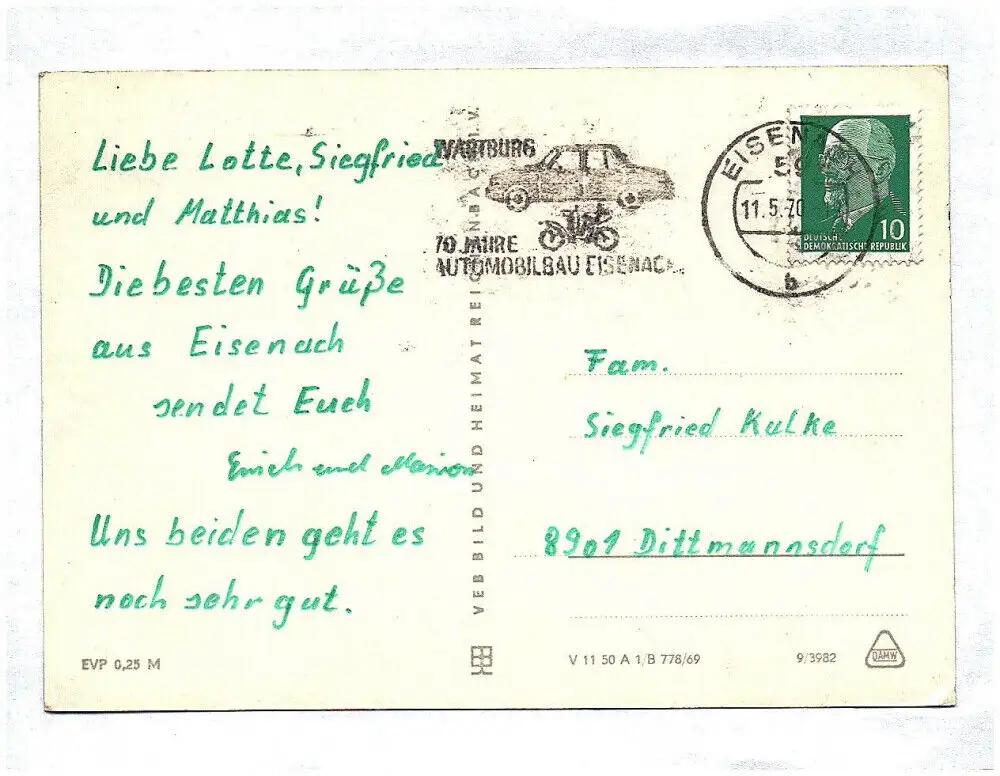 Liebe Lotte, Siegfried
und Matthias!
Die besten Grüße
aus Eisenach
sendet Euch
Erich und Marion
Uns beiden geht es
noch sehr gut.
EVP 0,25 M
WARTBURG
70 JAHRE
AUTOMOBILBAU EISENACH
VEB BILD UND HEIMAT REICHENBACH I. V.
EISENACH
59
11.5.70
b
10
DEUTSCHE
DEMOKRATISCHE REPUBLIK
Fam.
Siegfried Kulke
8901 Dittmannsdorf
V 11 50 A 1/B 778/69
9/3982
DAMW